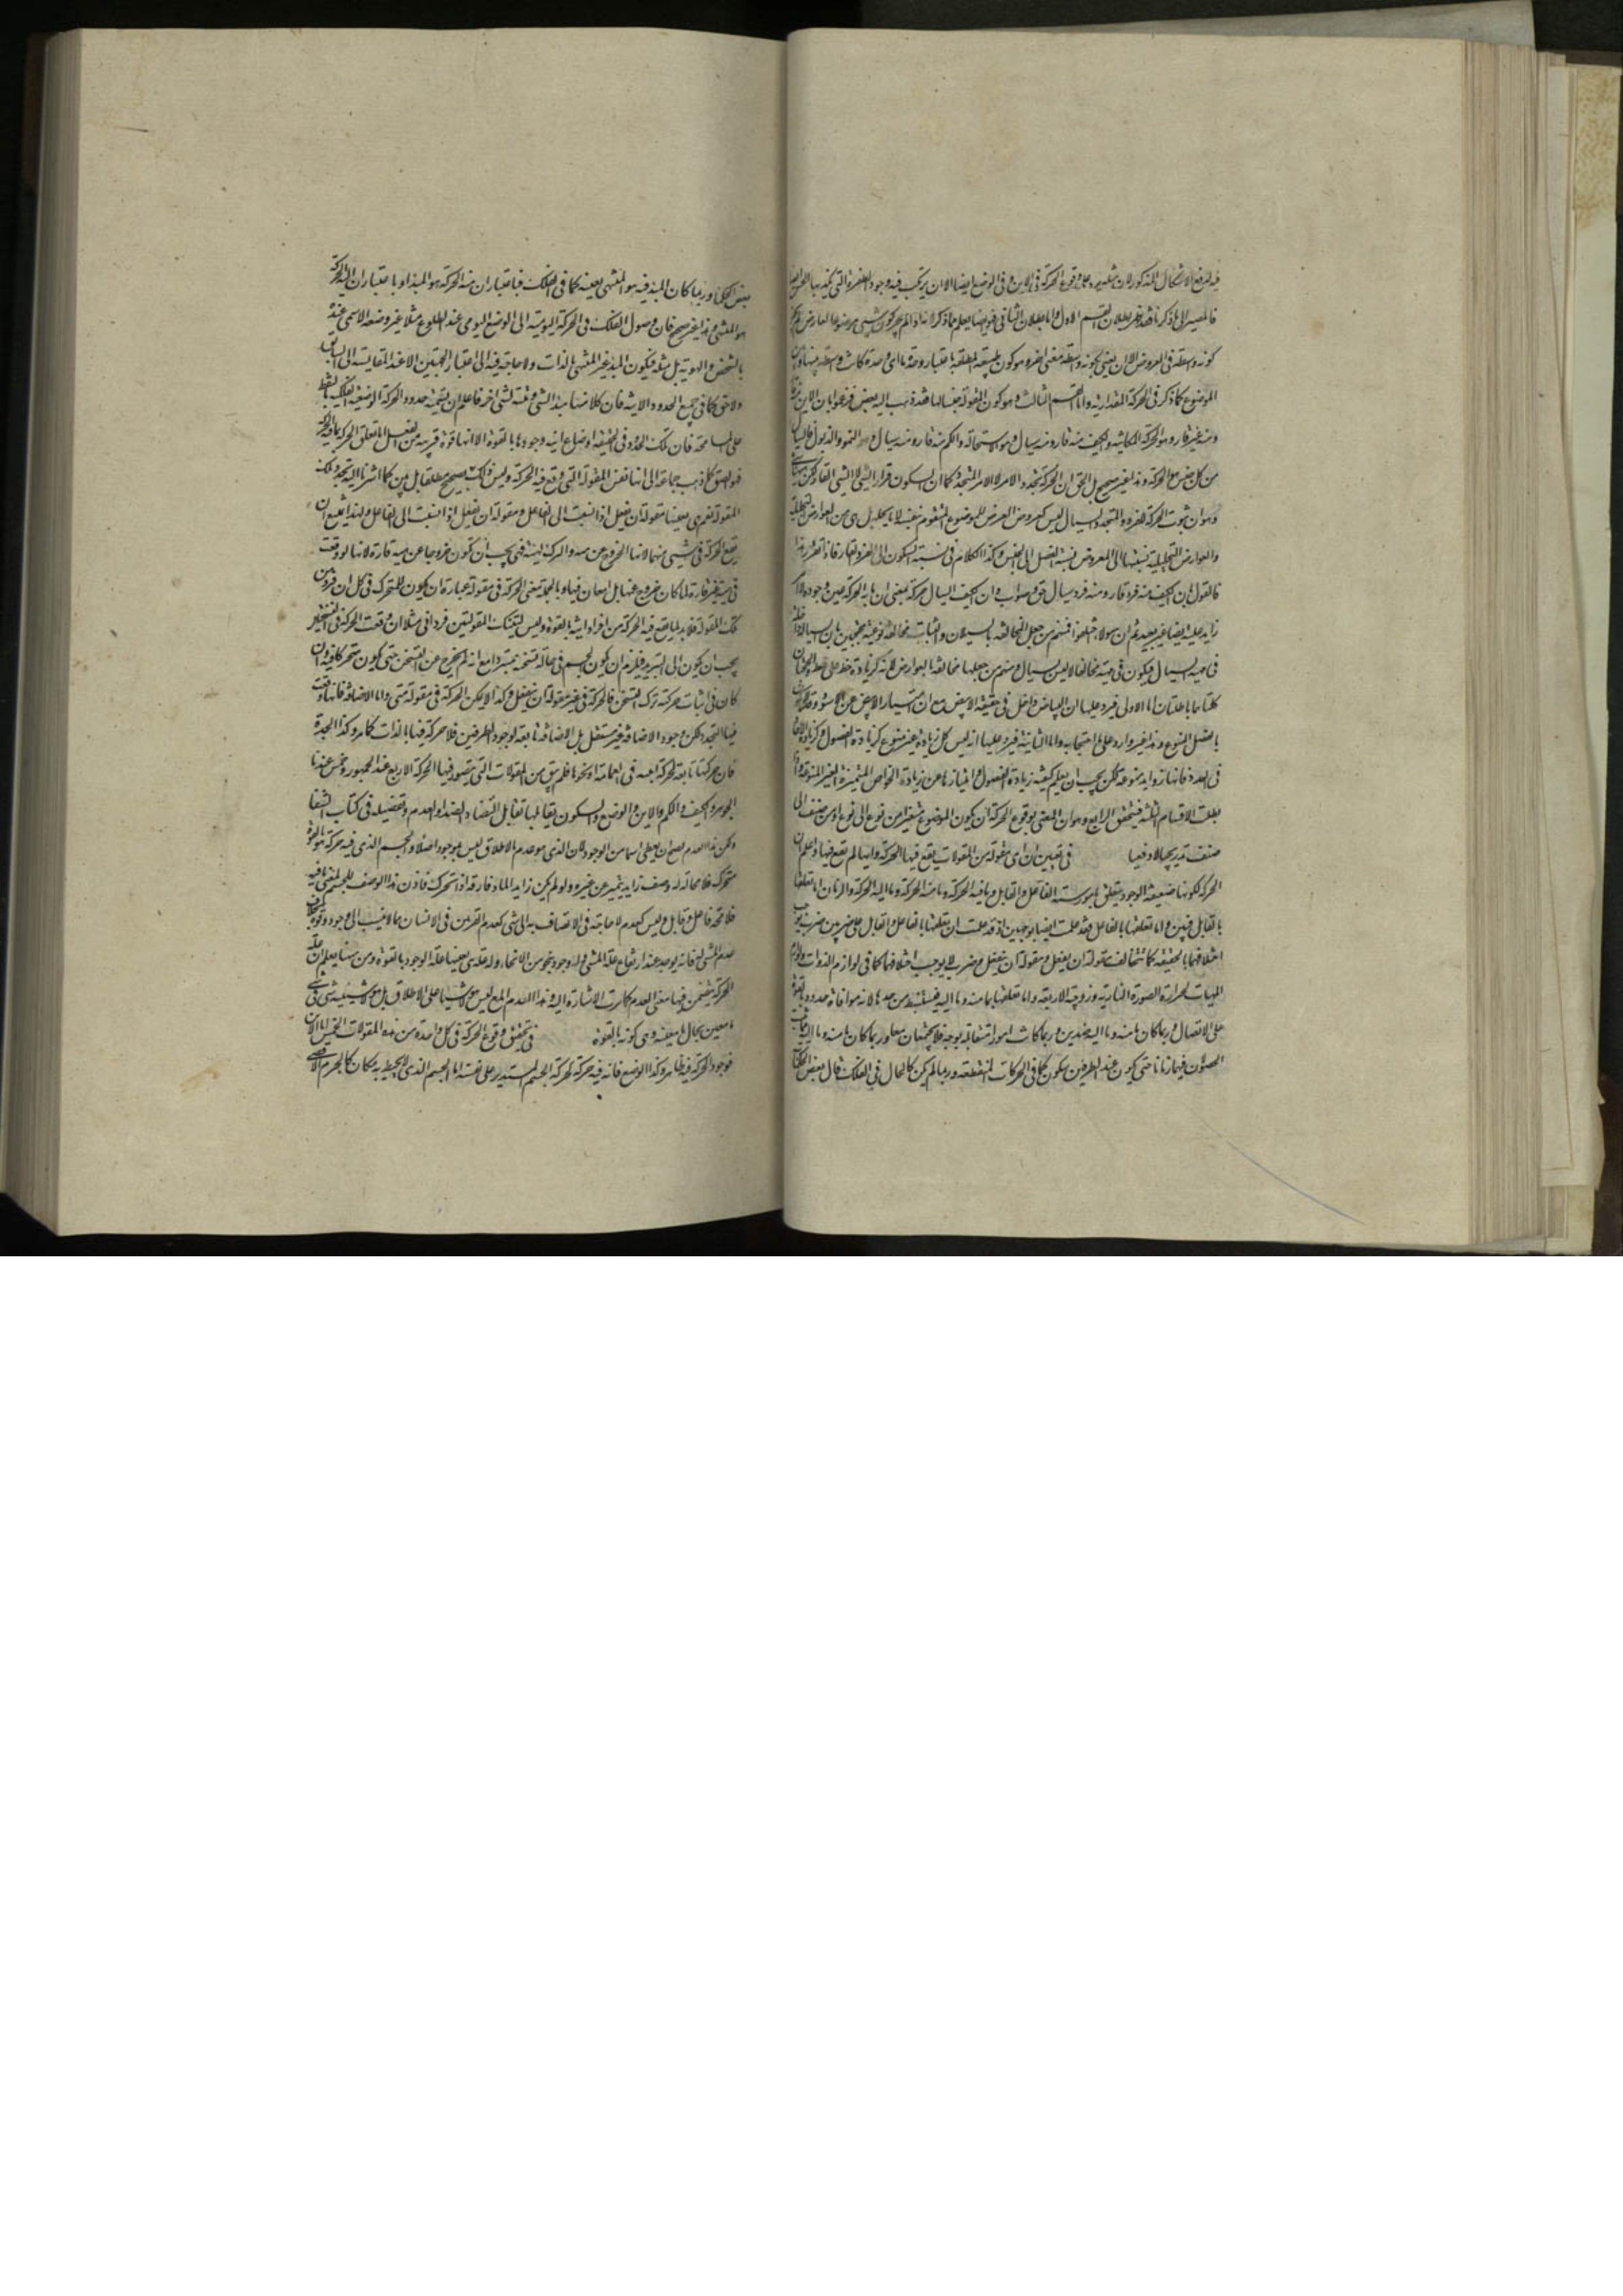 فالمصير الى ما ذكرناه فقد ظهر بطلان القسم الاول واما بطلان الثاني فهو ايضا يعلم مما ذكر
كونه واسطة في العروض الا ان يعنى بكونه واسطة معنى اخر وهو كون الطبيعة المطلقة باعتبار وحدة ما اي وحدة كانت واسطة
الموضوع كما ذكر في الحركة المقدارية واما القسم الثالث وهو كون المقولة جنسا لها فقد ذهب اليه بعض فزعموا بان الاين منه قار
ومنه غير قار وهو الحركة المكانية والكيف منه قار ومنه سيال وهو الاستحالة والكم منه قار ومنه سيال وهو النمو والذبول فالسيال
من كل جنس هو الحركة وهذا غير صحيح بل الحق ان الحركة تجدد الامر لا الامر المتجدد كما ان السكون قرار الشيء لا الشيء القار
وهو ان ثبوت الحركة للفرد المتجدد السيال ليس كعروض العرض للموضوع المتقوم بنفسه لا بما يحله بل هي من العوارض التحليلية
والعوارض التحليلية نسبتها الى المعروض نسبة الفصل الى الجنس وكذا الكلام في نسبة السكون الى الفرد القار فاذا تقرر هذا
فالقول بان الكيف منه فرد قار ومنه فرد سيال حق وصواب وان الكيف السيال حركة بمعنى ان ما به الحركة عين وجوده
زايد عليه ايضا غير بعيد ثم ان هولاء اختلفوا فمنهم من جعل المخالفة بالسيلان والثبات مخالفة نوعية محتجين بان السيالية داخلة
في ماهية السيال فيكون في ماهيته مخالفا لما ليس بسيال ومنهم من جعلها مخالفة بالعوارض لانه كزيادة خط على خط والحجتان
كلتاهما باطلتان اما الاولى فيرد عليها ان البياض داخل في حقيقة الابيض مع ان امتياز الابيض عن الاسود
بالفصل المنوع وهذا غير وارد على ما احتججنا به واما الثانية فيرد عليها انه ليس كل زيادة غير منوع كزيادة الفصول وكزيادة الاحاد
في العدد فانها زوايد منوعة لكن يجب ان يعلم كيفية زيادة الفصول وامتيازها عن زيادة الخواص المتميزة الغير المنوعة
بطلت الاقسام الثلثة فتحقق الرابع وهو ان المعنى بوقوع الحركة ان يكون الموضوع متغيرا من نوع الى نوع او من صنف الى
صنف تدريجيا لا دفعيا في تعيين ان اي مقولة من المقولات يقع فيها الحركة وايها لم تقع فيها واعلم ان
الحركة لكونها ضعيفة الوجود يتعلق بامور ستة الفاعل والقابل وما فيه الحركة وما منه الحركة وما اليه الحركة والزمان اما تعلقها
بالقابل فبين واما تعلقها بالفاعل فقد علمت ايضا بوجهين اذ قد علمت ان تعلقها بالفاعل والقابل على ضربين ضرب يوجب
اختلافهما بالحقيقة كما تتخالف مقولة ان يفعل ومقولة ان ينفعل وضرب لا يوجب اختلافهما كما في لوازم الذوات ولوازم
الماهيات كحرارة الصورة النارية وزوجية الاربعة واما تعلقها بما منه وما اليه فيستنبط من حدها لانه موافاة حدود بالقوة
على الاتصال وربما كان ما منه وما اليه ضدين وربما كانت امورا متقابلة بوجه فلا يجتمعان معا وربما كان ما منه وما اليه
الحصول فيهما زمانا حتى يكون عند الطرفين سكون كما في الحركات المنقطعة وربما لم يكن كالحال في الفلك قال بعض الحكماء
بعض الحكماء وربما كان المبدء فيه هو المنتهى بعينه كما في الفلك فباعتبار ان منه الحركة هو المبدا وباعتبار ان اليه الحركة
هو المنتهى وهذا غير صحيح فان وصول الفلك في الحركة اليومية الى الوضع اليومي عند الطلوع مثلا غير وضعه الامسي عنده
بالشخص والهوية بل مثله فيكون المبدء غير المنتهى بالذات ولا حاجة فيه الى اعتبار الجهتين الا عند المقايسة الى السابق
ولاحق كما في جميع الحدود الاينية فان كلا منها مبدء لشيء ومنتهى لشيء اخر فاعلم ان تسمية حدود الحركة الوضعية الفلكية بالنقط
على المسامحة فان تلك الحدود في الحقيقة اوضاع انية وجودها بالقوة الا انها قوة قريبة من الفعل اما تعلق الحركة بما فيه الحركة
فهو الحق كما ذهب جماعة الى انها نفس المقولة التي وقع فيها الحركة وليس ذلك بصحيح مطلقا بل هي كما اشرنا اليه تجدد تلك
المقولة نعم هي بعينها مقولة ان ينفعل اذا نسبت الى القابل ومقولة ان يفعل اذا نسبت الى الفاعل ولهذا يمتنع ان
تقع الحركة في شيء منهما لانها الخروج عن هيئة والترك لهيئة فهي يجب ان تكون خروجا عن هيئة قارة لانها لو وقعت
في هيئة غير قارة لما كان خروج عنها بل امعان فيها وبالجملة معنى الحركة في مقولة عبارة ان يكون للمتحرك في كل ان فرد من
تلك المقولة فلا بد لما يقع فيه الحركة من افراد انية بالقوة وليس لتينك المقولتين فرد اني مثلا ان وقعت الحركة في التسخين
يجب ان يكون الى التبريد فيلزم ان يكون الجسم في حالة تسخنه يتبرد مع انه لم يخرج عن التسخن حتى يكون متحركا فيه وان
كان في اثبات حركته ترك التسخن فالحركة في غير مقولة ان ينفعل وكذا لا يمكن الحركة في مقولة متى واما الاضافة فانها وقعت
فيها التجدد لكن وجود الاضافة غير مستقل بل الاضافة تابعة لوجود الطرفين فلا حركة فيها بالذات كما مر وكذا الجدة
فان حركتها تابعة لحركة اينية في العمامة او نحوها فلم يبق من المقولات التي يتصور فيها الحركة الا ربع عند الجمهور وخمس عندنا
الجوهر والكيف والكم والاين والوضع والسكون يقابلها تقابل التضاد او العدم وتفصيله في كتاب الشفا
ولكن هذا العدم يصح ان يعطى اسما من الوجود لان الذي هو عدم بالاطلاق ليس بموجود اصلا والجسم الذي فيه حركة بالقوة
متحرك فلا محالة له وصف زايد يتميز عن غيره ولو لم يكن زايدا لما فارقه اذا تحرك فاذن هذا الوصف للجسم لمعنى ما فيه
فلا محالة فاعل وقابل وليس كعدم لا حاجة في الاتصاف به الى شيء كعدم القرنين في الانسان مما لا ينسب الى وجود وقوة
عدم المشي له فانه يوجد عند ارتفاع علة المشي وله وجود بنحو من الانحاء وله علة هي بعينها علة الوجود بالقوة ومن هنا يعلم ان
الحركة يتضمن فيها معنى العدم كما مرت الاشارة اليه وهذا العدم ليس هو لا شيئا على الاطلاق بل هو لا شيئية شيء في شيء
ما معين بحال ما معينة وهي كونه بالقوة في تحقيق وقوع الحركة في كل واحدة من هذه المقولات الخمس اما الاين
فوجود الحركة فيه ظاهر وكذا الوضع فانه فيه حركة كحركة الجسم المستدير على نفسه اما الجسم الذي لا يحيط به مكان كالجرم الاقصى